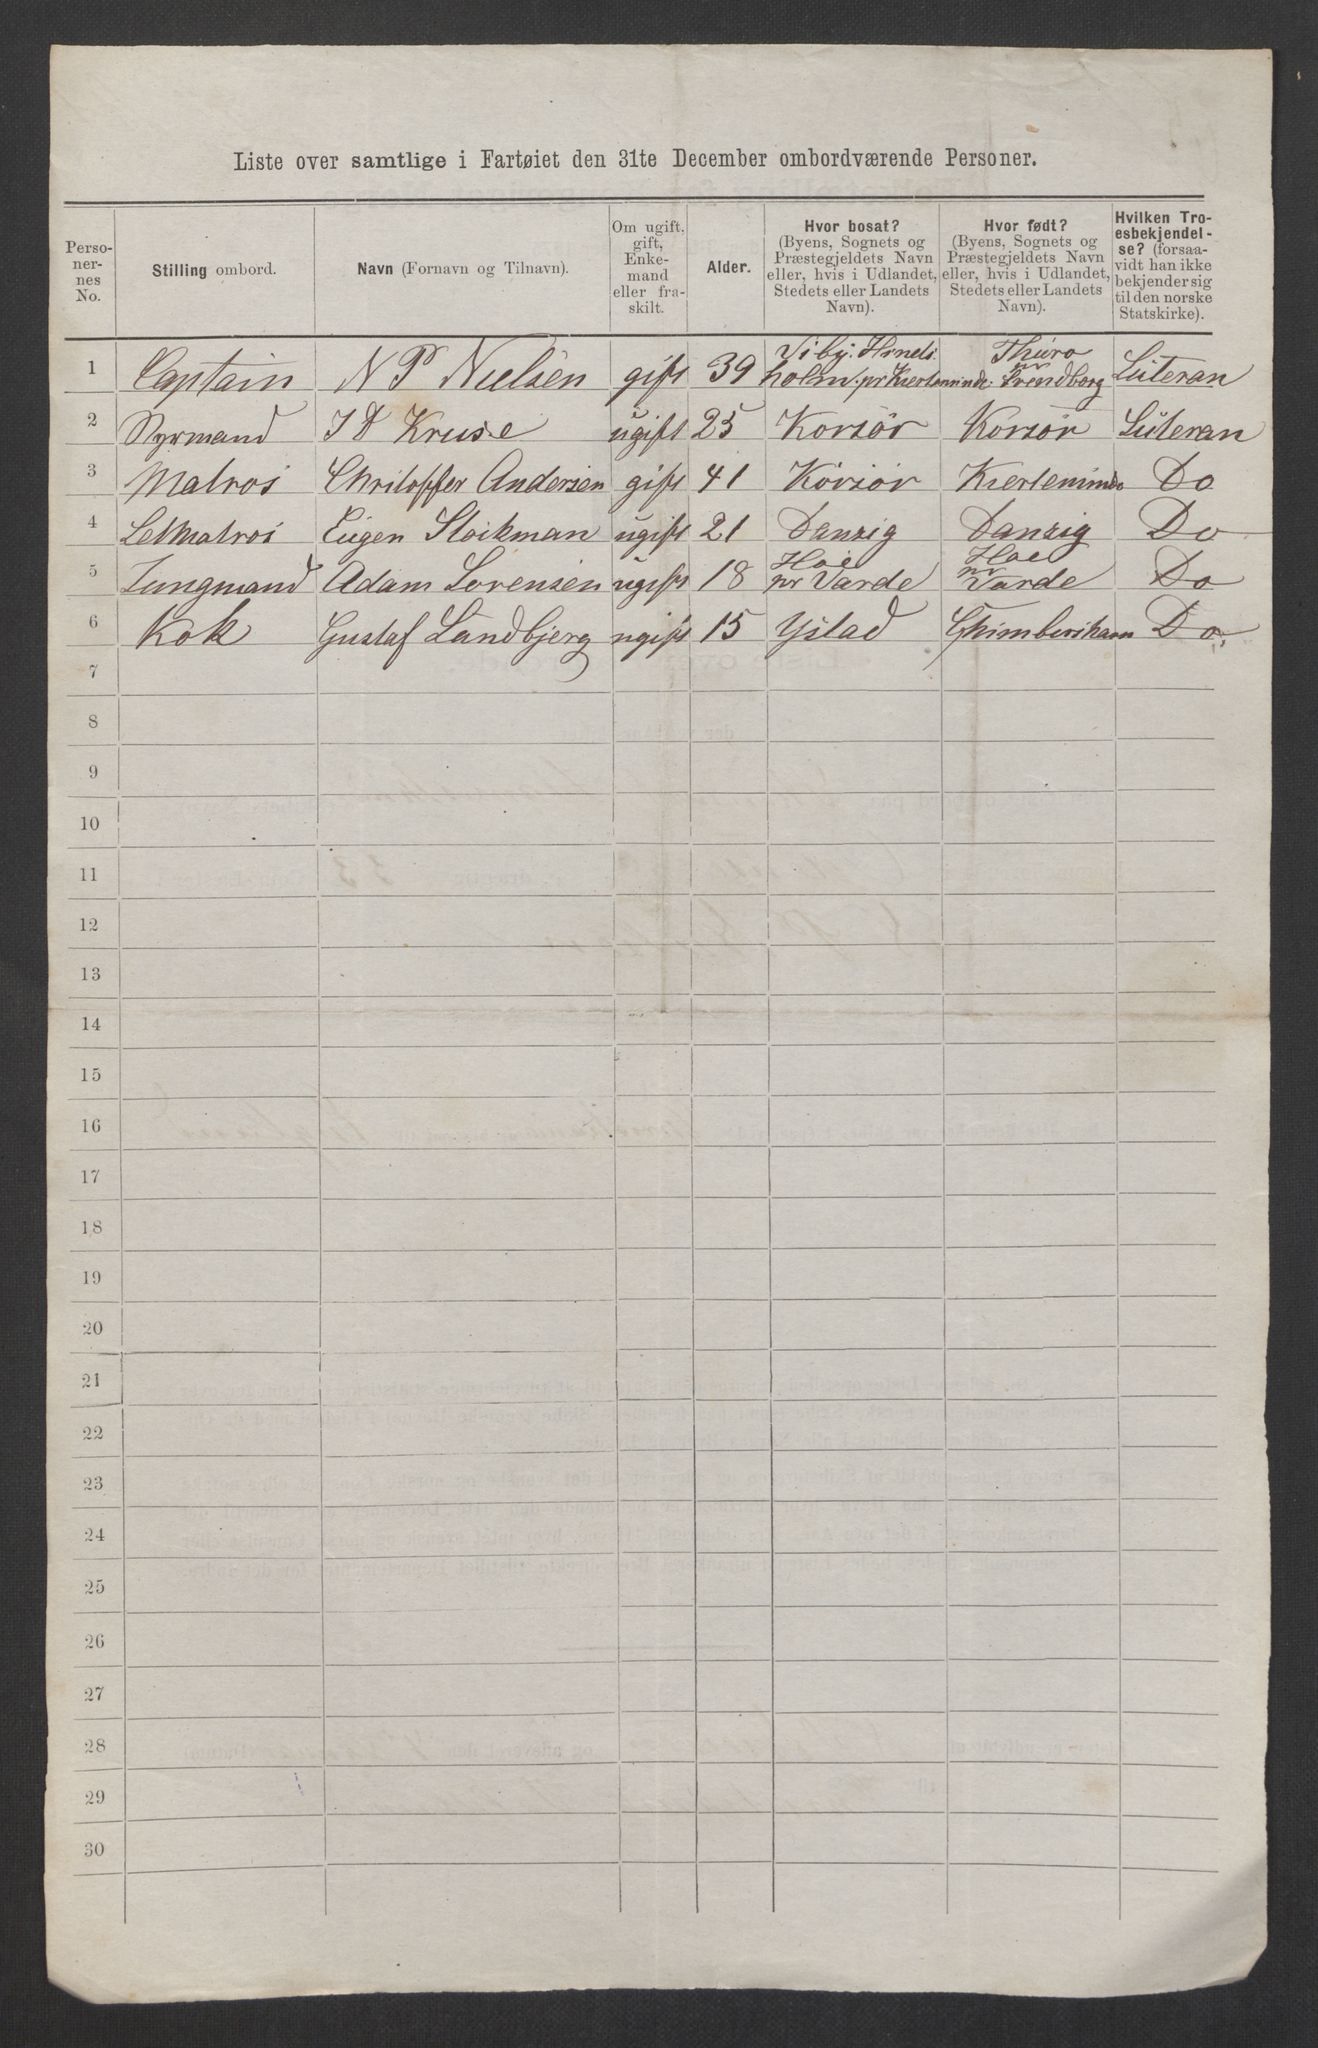 Liste over samtlige i Fartøiet den 31te December ombordværende Personer.
Perso-
ner-
nes
No.
Stilling ombord.
Navn (Fornavn og Tilnavn).
Om ugift,
gift,
Enke-
mand
eller fra-
skilt.
Alder.
Hvor bosat?
(Byens, Sognets og
Præstegjeldets Navn
eller, hvis i Udlandet,
Stedets eller Landets
Navn).
Hvor født?
(Byens, Sognets og
Præstegjeldets Navn
eller, hvis i Udlandet,
Stedets eller Landets
Navn).
Hvilken Tro-
esbekjendel-
se? (forsaa-
vidt han ikke
bekjender sig
til den norske
Statskirke).
1 Captain N P Nielsen gift 39 Viby. Hinds holm. pr Kierteminde. Thuro pr Svendborg Luteran
2 Styrmand J D Kruse ugift 25 Korsör Korsör Luteran
3 Matros Chritoffer Andersen gift 41 Korsör Kierteminde Do
4 Letmatros Eugen Stoikman ugift 21 Danzig Danzig Do
5 Jungmand Adam Sorensen ugift 18 Hoe pr Varde Hoe pr Varde Do
6 Kok Gustaf Landbjerg ugift 15 Ystad Do
7
8
9
10
11
12
13
14
15
16
17
18
19
20
21
22
23
24
25
26
27
28
29
30